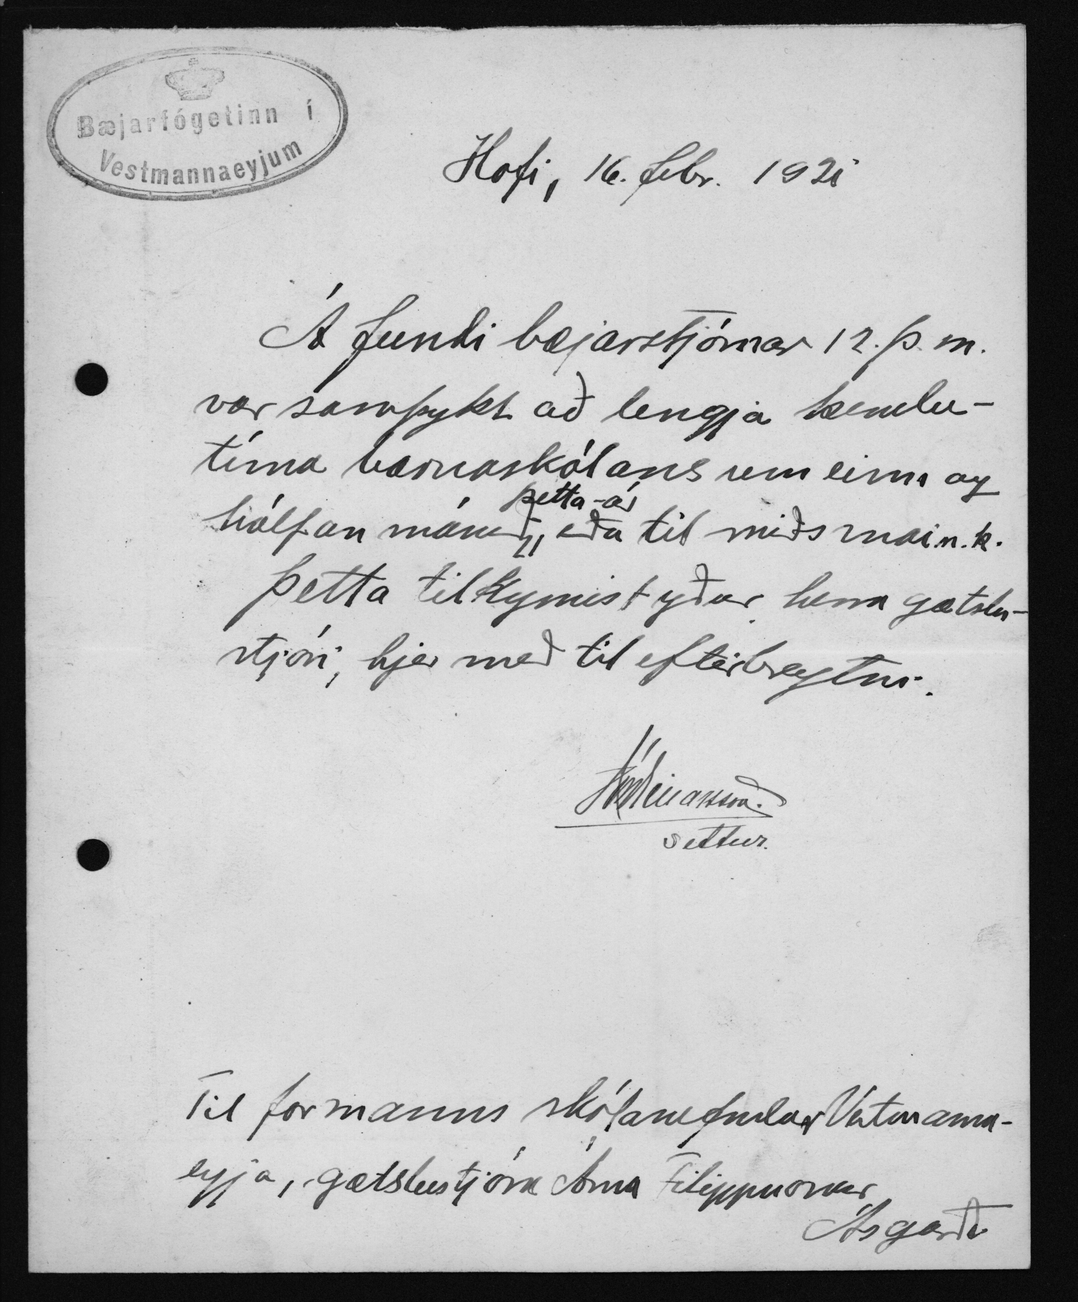 Bæjarfógetinn í
Vestmannaeyjum
Hofi, 16. febr. 1921
Á fundi bæjarstjórnar 12. þ. m.
var samþykt að lengja kenslu-
tíma barnaskólans um einn og
hálfan mánuð þetta ár, eða til miðs maí n.k.
Þetta tilkynnist yður, herra gæslu-
stjóri, hjer með til eftirbreytni.
settur.
Til formanns skólanefndar Vestmanna-
eyja, gæslustjóra Árna Filippussonar
Ásgarði